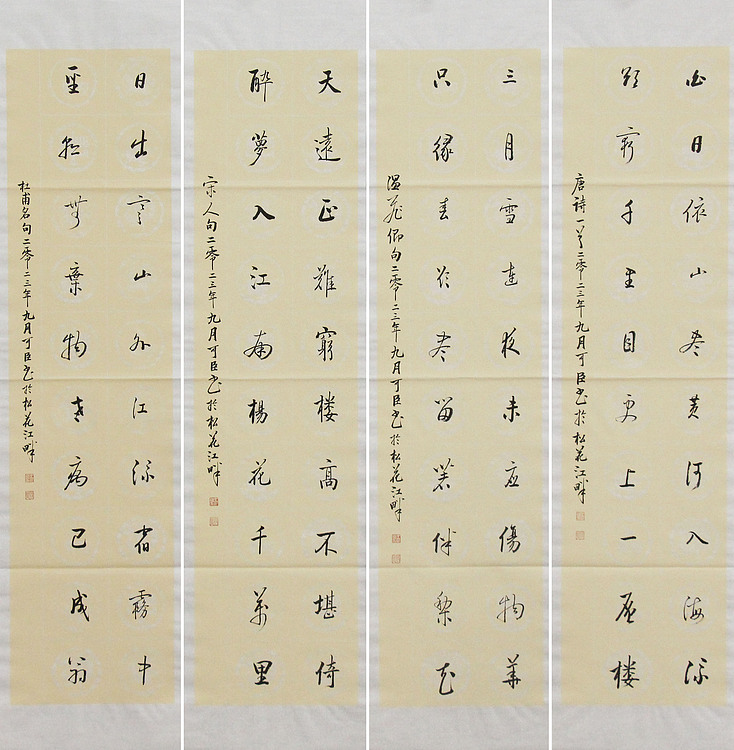 白日依山尽黄河入海流
欲窮千里目更上一层楼
唐詩一首二零二三年九月可臣书於松花江畔
三月雪連夜未应傷物華
只緣春欲尽留著伴梨花
温飛卿句二零二三年九月可臣书於松花江畔
天遠正難窮楼高不堪倚
醉夢入江南楊花千萬里
宋人句二零二三年九月可臣书於松花江畔
日出寒山外江流宿霧中
聖朝無棄物老病已成翁
杜甫名句二零二三年九月可臣书於松花江畔